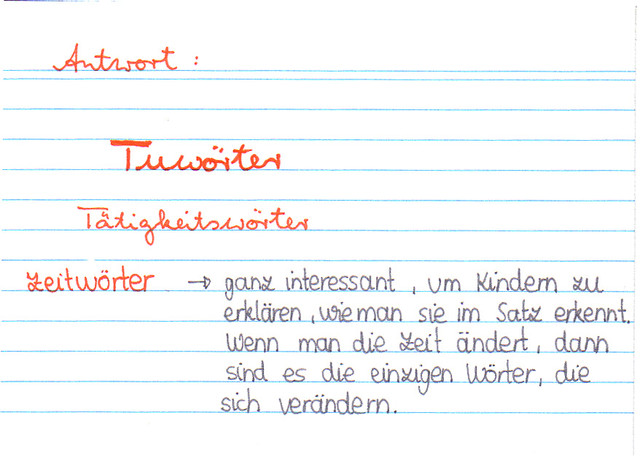 Antwort :
Tuwörter
Tätigkeitswörter
Zeitwörter → ganz interessant, um Kindern zu
erklären, wie man sie im Satz erkennt.
Wenn man die Zeit ändert, dann
sind es die einzigen Wörter, die
sich verändern.